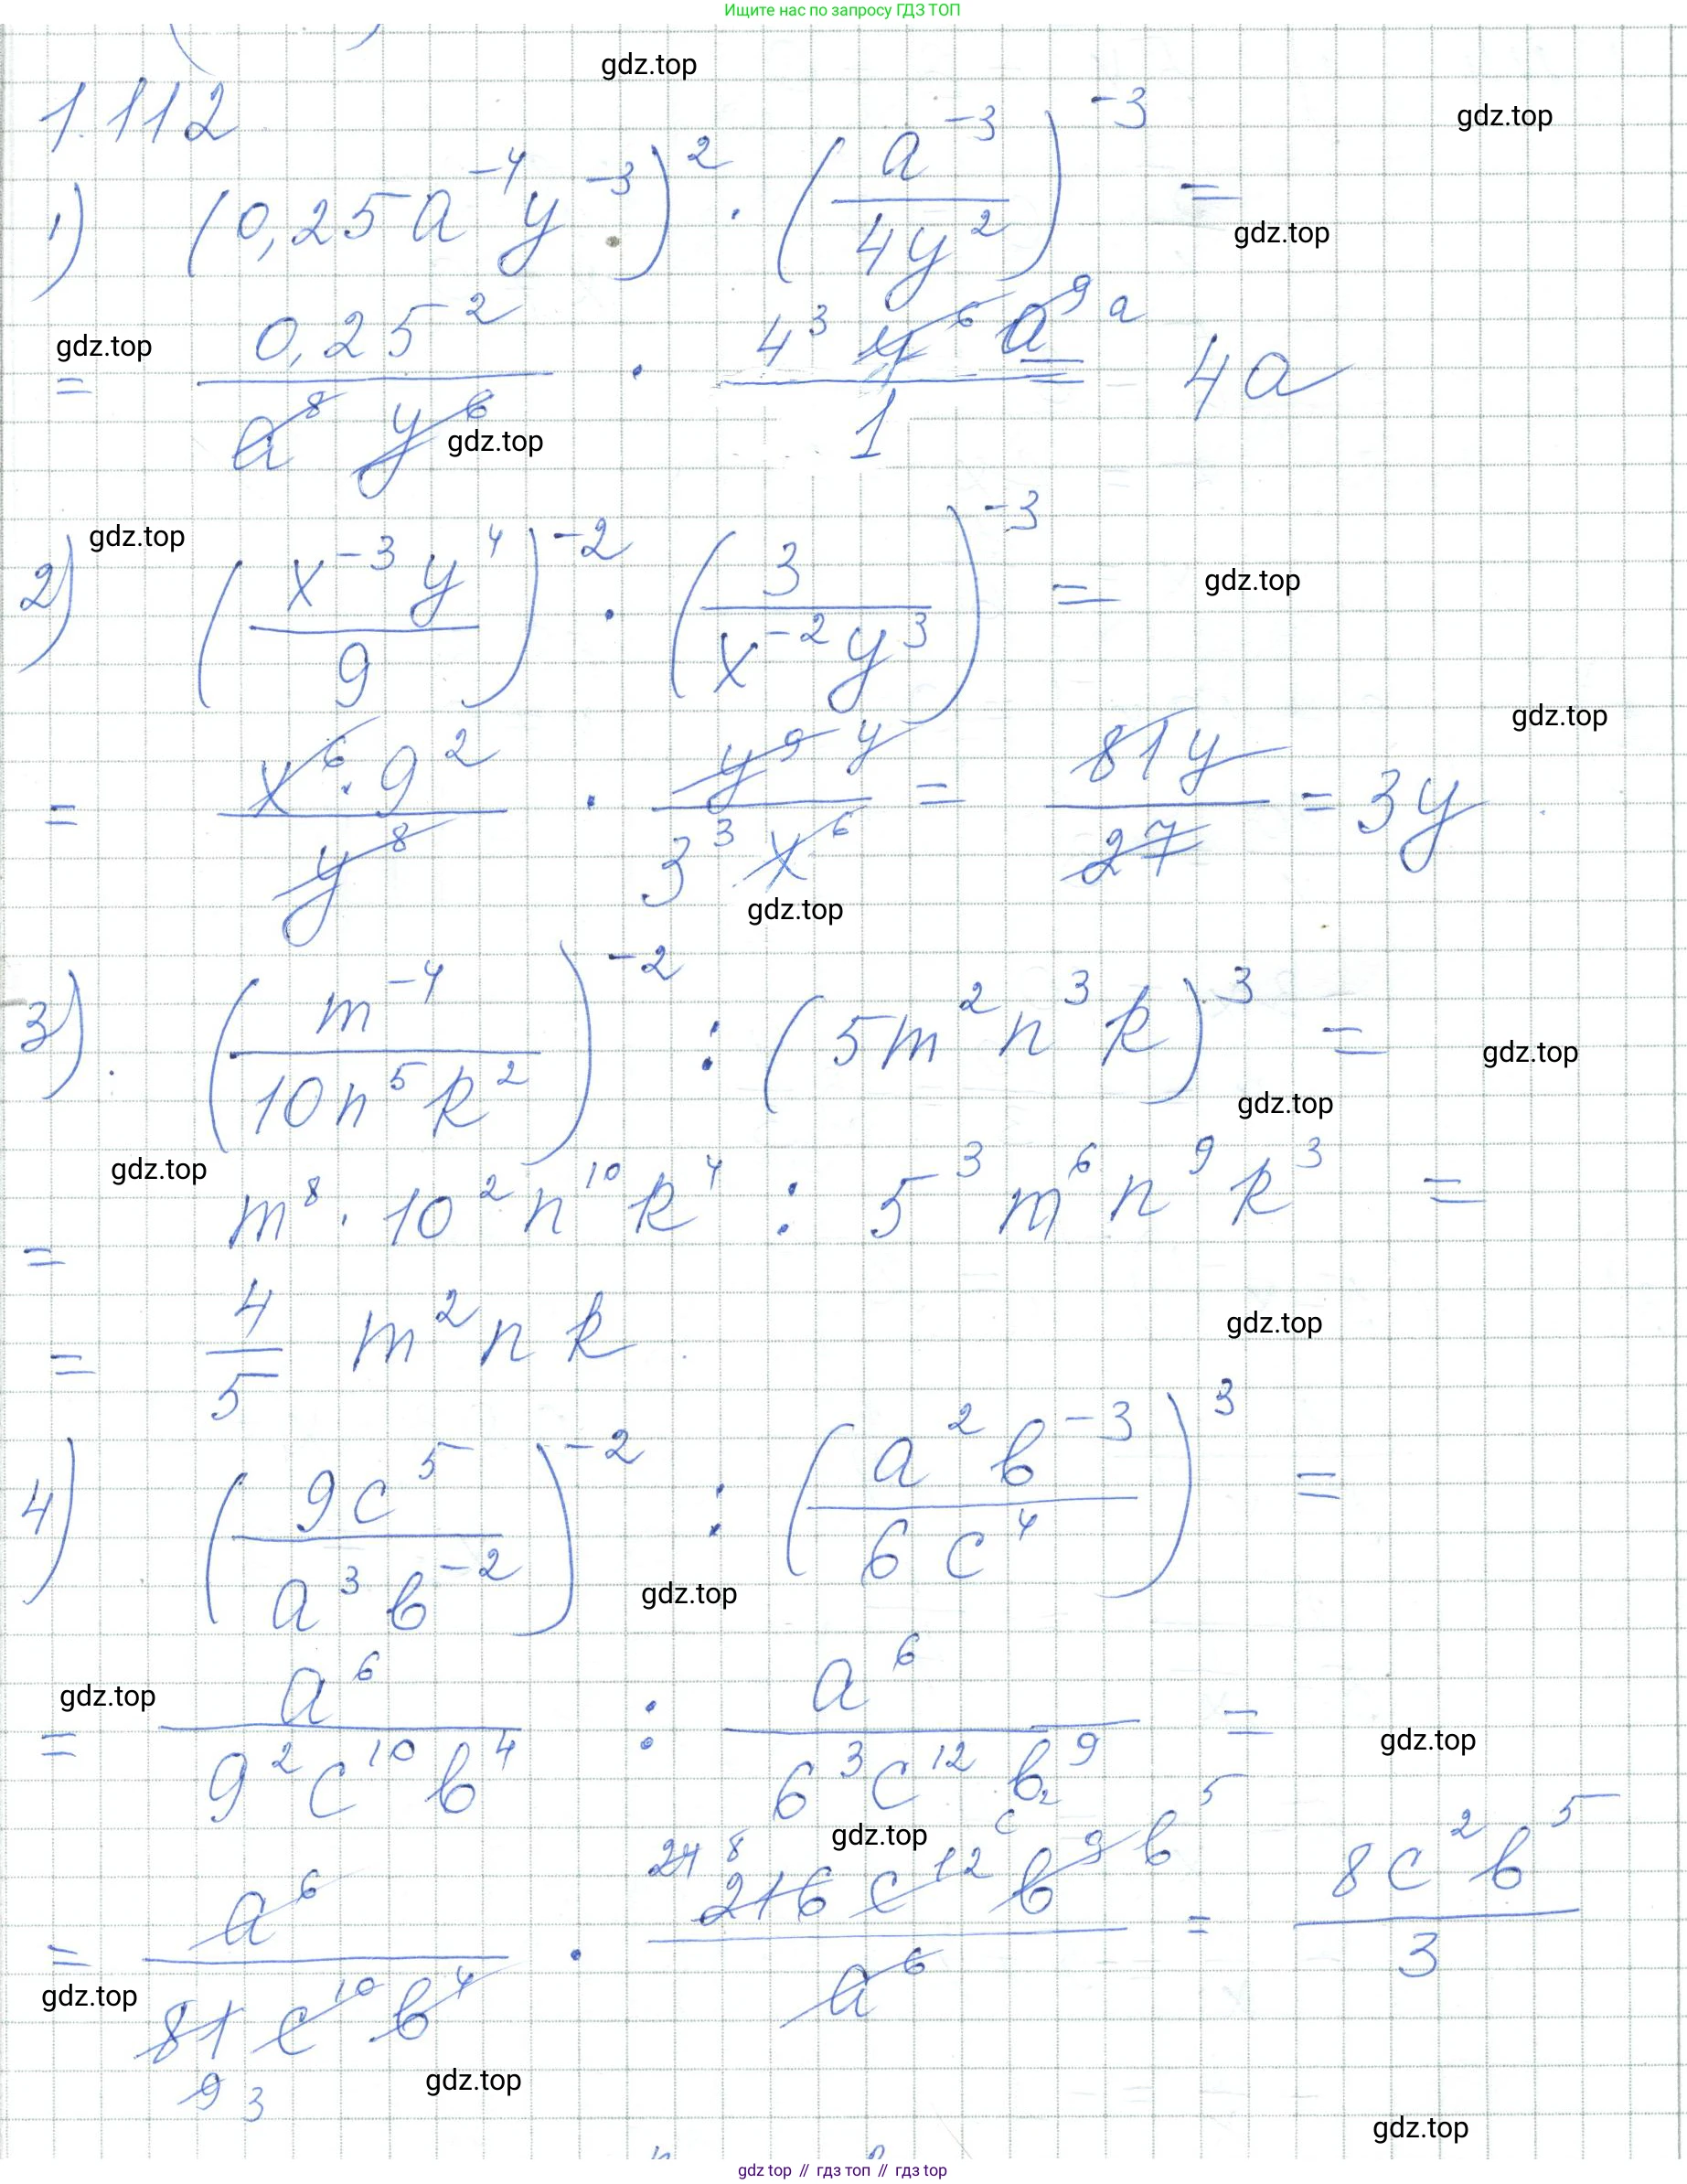 Ищите нас по запросу ГДЗ ТОП
gdz.top
1.112
gdz.top
1) (0,25a^{-4}y^{-3})^2 · (a^{-3}/4y^2)^{-3} =
gdz.top
gdz.top
= 0,25^2/a^8 y^6 · 4^3 y^6 a^9 a/1 4a
gdz.top
gdz.top
2) (x^{-3}y^4/9)^{-2} · (3/x^{-2}y^3)^{-3} =
gdz.top
gdz.top
= x^6·9^2/y^8 · y^9 y/3^3 x^6 = 81y/27 = 3y
gdz.top
3) (m^{-4}/10n^5k^2)^{-2} : (5m^2n^3k)^3 =
gdz.top
gdz.top
gdz.top
= m^8·10^2n^{10}k^4 : 5^3m^6n^9k^3 =
gdz.top
= 4/5 m^2nk
4) (9c^5/a^3b^{-2})^{-2} : (a^2b^{-3}/6c^4)^3 =
gdz.top
gdz.top
= a^6/9^2c^{10}b^4 : a^6/6^3c^{12}b^9 =
gdz.top
gdz.top
24 8 c^2 b^5
= a^6/81c^{10}b^4 · 216c^{12}b^9/a^6 = 8c^2b^5/3
gdz.top
9 3
gdz.top
gdz.top
gdz.top // гдз топ // гдз top